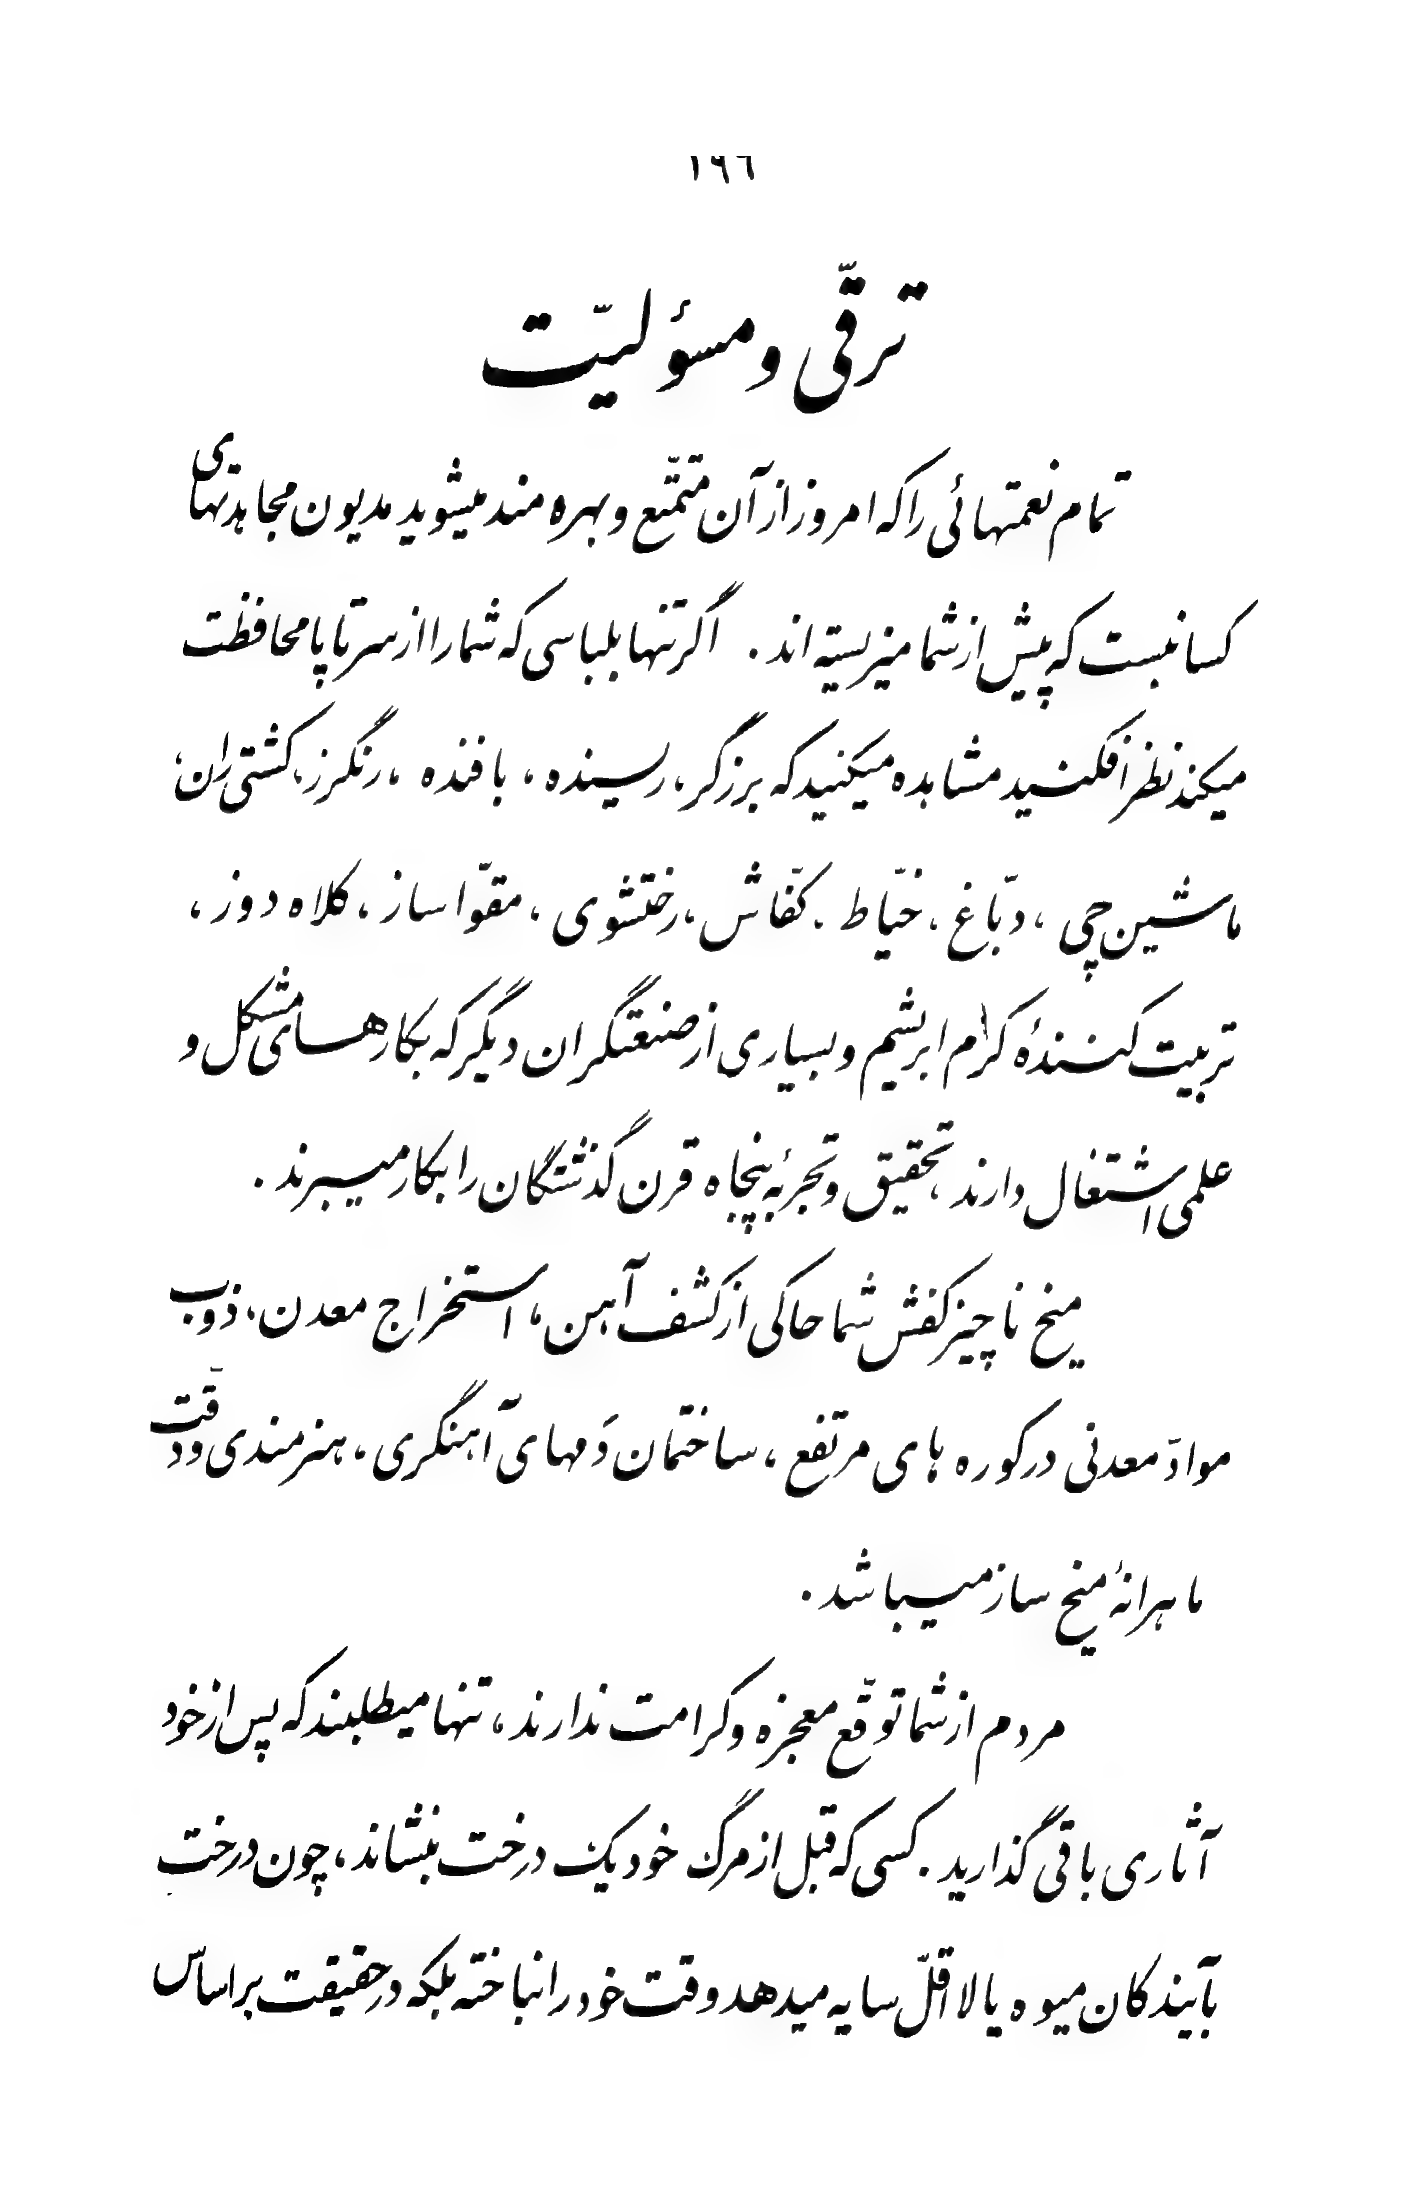 ١٩٦
ترقّی و مسؤلیّت
تمام نعمتهائی را که امروز از آن متمتّع و بهره مند میشوید مدیون مجاهدتهای
کسانیست که پیش از شما میزیسته اند . اگر تنها بلباسی که شما را از سر تا پا محافظت
میکند نظر افکنید مشاهده میکنید که برزگر ، ریسنده ، بافنده ، رنگرز ، کشتی ران ،
ماشین چی ، دبّاغ ، خیّاط . کفّاش ، رختشوی ، مقوّا ساز ، کلاه دوز ،
تربیت کنندهٔ کرم ابریشم و بسیاری از صنعتگران دیگر که بکارهای مشکل و
علمی اشتغال دارند ، تحقیق و تجربهٔ پنجاه قرن گذشتگان را بکار میبرند .
میخ ناچیز کفش شما حاکی از کشف آهن ، استخراج معدن ، ذوب
موادّ معدنی در کوره های مرتفع ، ساختمان دَمهای آهنگری ، هنرمندی و دقّت
ماهرانهٔ میخ ساز میباشد .
مردم از شما توقّع معجزه و کرامت ندارند ، تنها میطلبند که پس از خود
آثاری باقی گذارید . کسی که قبل از مرگ خود یک درخت بنشاند ، چون درخت
بآیندکان میوه یا لااقلّ سایه میدهد وقت خود را نباخته بلکه در حقیقت بر اساس